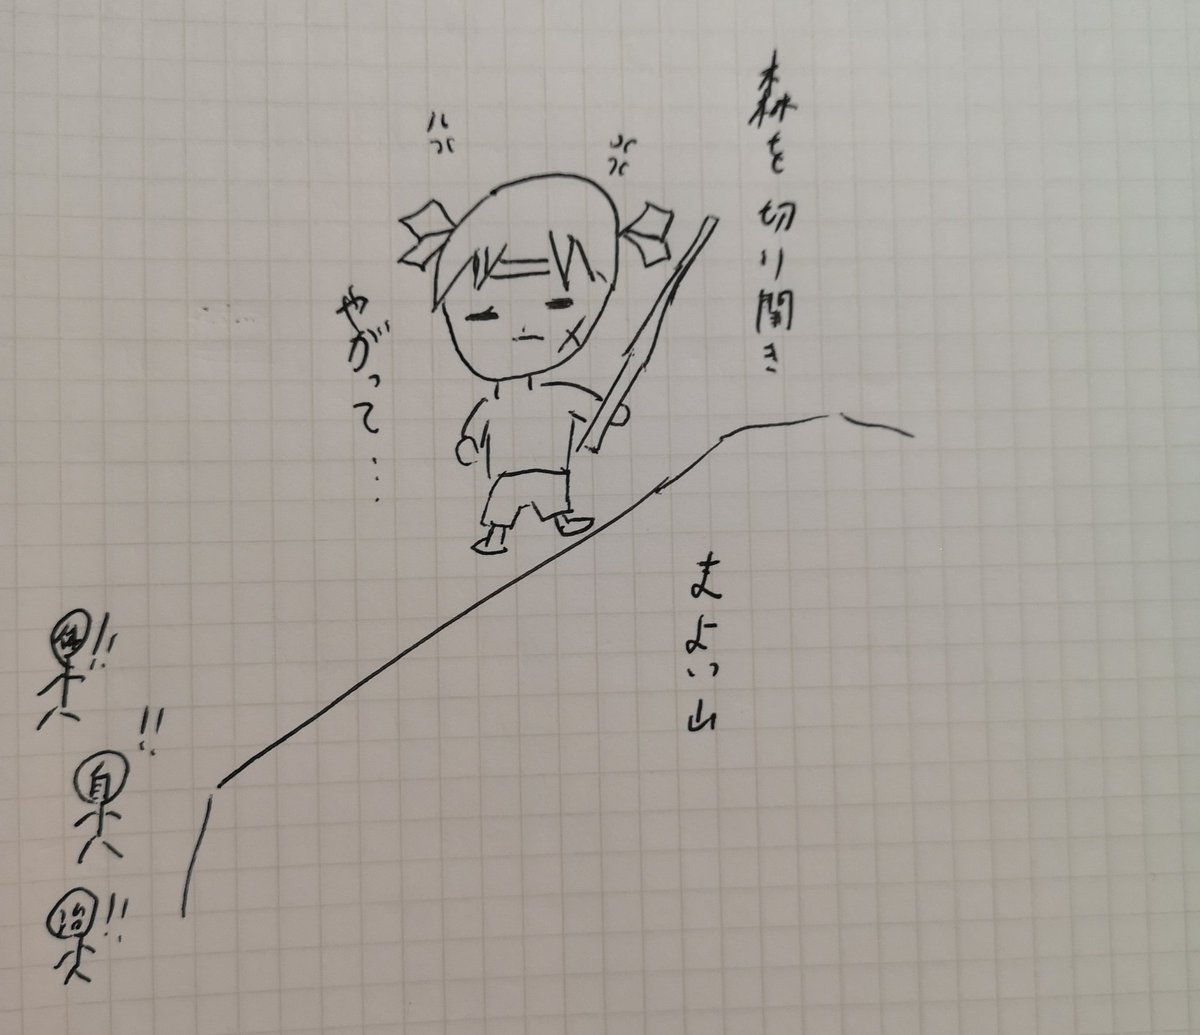 森を切り開き
やがって…
まよい山
!!
!!
自
!!
治